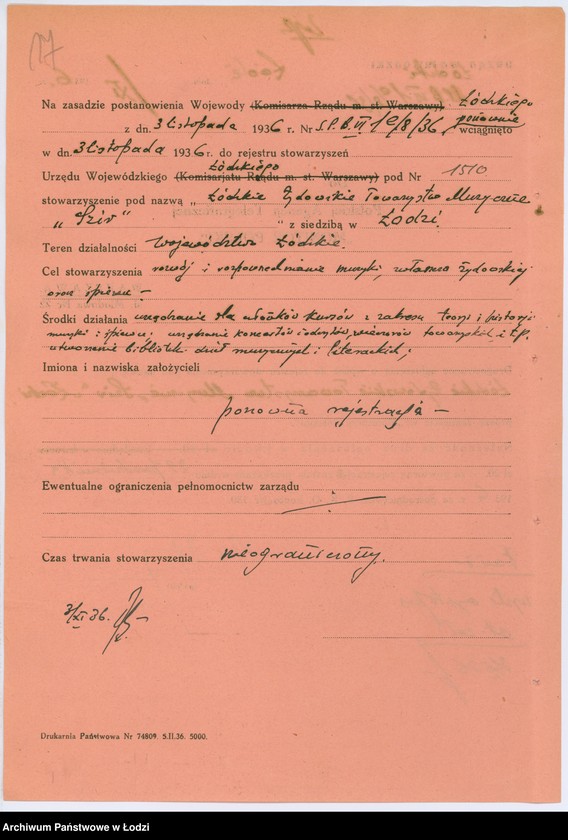 17
Na zasadzie postanowienia Wojewody (Komisarza Rządu m. st. Warszawy) Łódzkiego
z dn. 3 listopada 1936 r. Nr S.P.B. VI 1e/8/36, ponownie wciągnięto
w dn. 3 listopada 1936 r. do rejestru stowarzyszeń
Łódzkiego
Urzędu Wojewódzkiego (Komisarjatu Rządu m. st. Warszawy) pod Nr 1510
stowarzyszenie pod nazwą „ Łódzkie Żydowskie Towarzystwo Muzyczne
„Szir" " z siedzibą w Łodzi.
Teren działalności województwo Łódzkie.
Cel stowarzyszenia rozwój i rozpowszechnianie muzyki, zwłaszcza żydowskiej
oraz śpiewu.—
Środki działania urządzanie dla członków kursów z zakresu teorji i historji
muzyki i śpiewu, urządzanie koncertów i odczytów, wieczorów towarzyskich i t.p.
utworzenie bibljoteki dzieł muzycznych i literackich;
Imiona i nazwiska założycieli
ponowna rejestracja —
Ewentualne ograniczenia pełnomocnictw zarządu
Czas trwania stowarzyszenia nieograniczony.
3/XI 36.
Drukarnia Państwowa Nr 74809. 5.II.36. 5000.
Archiwum Państwowe w Łodzi